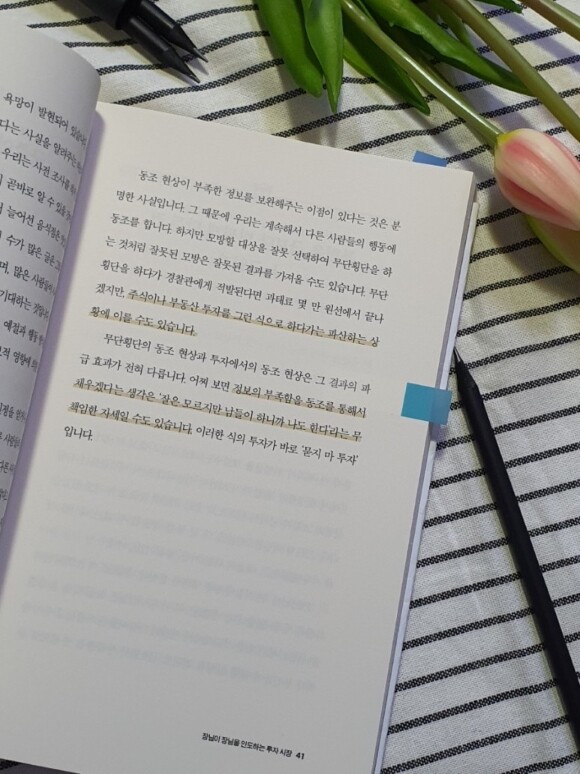 욕망이 발현되어 있습니다.
다는 사실을 알려주는
우리는 사전 조사를
곧바로 알 수 있을
늘어선 음식점은
수가 많은 글은
며, 많은 사람들이
기대하는 것입니다
예절과 행동
동조 현상이 부족한 정보를 보완해주는 이점이 있다는 것은 분
명한 사실입니다. 그 때문에 우리는 계속해서 다른 사람들의 행동에
동조를 합니다. 하지만 모방할 대상을 잘못 선택하여 무단횡단을 하
는 것처럼 잘못된 모방은 잘못된 결과를 가져올 수도 있습니다. 무단
횡단을 하다가 경찰관에게 적발된다면 과태료 몇 만 원선에서 끝나
겠지만, 주식이나 부동산 투자를 그런 식으로 하다가는 파산하는 상
황에 이를 수도 있습니다.
무단횡단의 동조 현상과 투자에서의 동조 현상은 그 결과의 파
급 효과가 전혀 다릅니다. 어찌 보면 정보의 부족함을 동조를 통해서
채우겠다는 생각은 '잘은 모르지만 남들이 하니까 나도 한다'라는 무
책임한 자세일 수도 있습니다. 이러한 식의 투자가 바로 '묻지 마 투자'
입니다.
장님이 장님을 인도하는 투자 시장 41